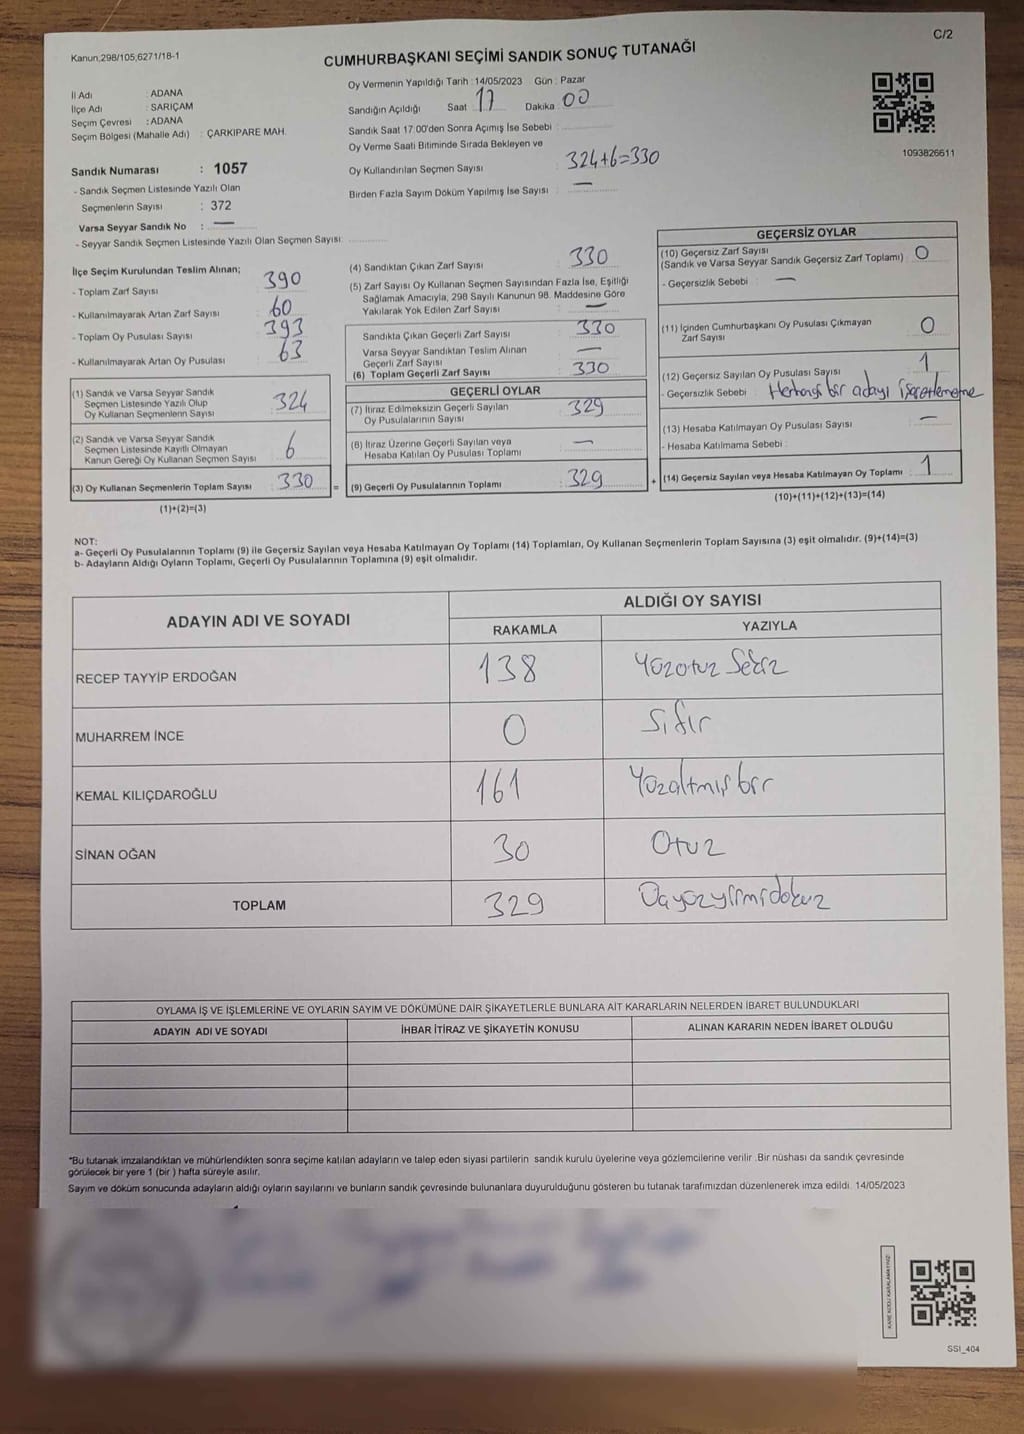 C/2
Kanun,298/105,6271/18-1
CUMHURBAŞKANI SEÇİMİ SANDIK SONUÇ TUTANAĞI
İl Adı : ADANA
İlçe Adı : SARIÇAM
Seçim Çevresi : ADANA
Seçim Bölgesi (Mahalle Adı) : ÇARKIPARE MAH.
Sandık Numarası : 1057
- Sandık Seçmen Listesinde Yazılı Olan
Seçmenlerin Sayısı : 372
Varsa Seyyar Sandık No : —
- Seyyar Sandık Seçmen Listesinde Yazılı Olan Seçmen Sayısı:
Oy Vermenin Yapıldığı Tarih : 14/05/2023 Gün : Pazar
Sandığın Açıldığı Saat 17 Dakika : 00
Sandık Saat 17:00'den Sonra Açımış İse Sebebi :
Oy Verme Saati Bitiminde Sırada Bekleyen ve
Oy Kullandırılan Seçmen Sayısı : 324+6=330
Birden Fazla Sayım Döküm Yapılmış İse Sayısı : —
1093826611
İlçe Seçim Kurulundan Teslim Alınan;
- Toplam Zarf Sayısı : 390
- Kullanılmayarak Artan Zarf Sayısı : 60
- Toplam Oy Pusulası Sayısı : 393
- Kullanılmayarak Artan Oy Pusulası : 63
(1) Sandık ve Varsa Seyyar Sandık
Seçmen Listesinde Yazılı Olup
Oy Kullanan Seçmenlerin Sayısı : 324
(2) Sandık ve Varsa Seyyar Sandık
Seçmen Listesinde Kayıtlı Olmayan
Kanun Gereği Oy Kullanan Seçmen Sayısı : 6
(3) Oy Kullanan Seçmenlerin Toplam Sayısı : 330
(1)+(2)=(3)
=
(4) Sandıktan Çıkan Zarf Sayısı : 330
(5) Zarf Sayısı Oy Kullanan Seçmen Sayısından Fazla İse, Eşitliği
Sağlamak Amacıyla, 298 Sayılı Kanunun 98. Maddesine Göre
Yakılarak Yok Edilen Zarf Sayısı : —
Sandıkta Çıkan Geçerli Zarf Sayısı : 330
Varsa Seyyar Sandıktan Teslim Alınan
Geçerli Zarf Sayısı : —
(6) Toplam Geçerli Zarf Sayısı : 330
GEÇERLİ OYLAR
(7) İtiraz Edilmeksizin Geçerli Sayılan
Oy Pusulalarının Sayısı : 329
(8) İtiraz Üzerine Geçerli Sayılan veya
Hesaba Katılan Oy Pusulası Toplamı : —
(9) Geçerli Oy Pusulalarının Toplamı : 329
+
GEÇERSİZ OYLAR
(10) Geçersiz Zarf Sayısı
(Sandık ve Varsa Seyyar Sandık Geçersiz Zarf Toplamı) : 0
- Geçersizlik Sebebi : —
(11) İçinden Cumhurbaşkanı Oy Pusulası Çıkmayan
Zarf Sayısı : 0
(12) Geçersiz Sayılan Oy Pusulası Sayısı : 1
- Geçersizlik Sebebi : Herhangi bir adayı işaretlememe
(13) Hesaba Katılmayan Oy Pusulası Sayısı : —
- Hesaba Katılmama Sebebi :
(14) Geçersiz Sayılan veya Hesaba Katılmayan Oy Toplamı : 1
(10)+(11)+(12)+(13)=(14)
NOT:
a- Geçerli Oy Pusulalarının Toplamı (9) ile Geçersiz Sayılan veya Hesaba Katılmayan Oy Toplamı (14) Toplamları, Oy Kullanan Seçmenlerin Toplam Sayısına (3) eşit olmalıdır. (9)+(14)=(3)
b- Adayların Aldığı Oyların Toplamı, Geçerli Oy Pusulalarının Toplamına (9) eşit olmalıdır.
ADAYIN ADI VE SOYADI
ALDIĞI OY SAYISI
RAKAMLA YAZIYLA
RECEP TAYYİP ERDOĞAN 138 Yüzotuz Sekiz
MUHARREM İNCE 0 Sıfır
KEMAL KILIÇDAROĞLU 161 Yüzaltmış bir
SİNAN OĞAN 30 Otuz
TOPLAM 329 Üçyüzyirmidokuz
OYLAMA İŞ VE İŞLEMLERİNE VE OYLARIN SAYIM VE DÖKÜMÜNE DAİR ŞİKAYETLERLE BUNLARA AİT KARARLARIN NELERDEN İBARET BULUNDUKLARI
ADAYIN ADI VE SOYADI İHBAR İTİRAZ VE ŞİKAYETİN KONUSU ALINAN KARARIN NEDEN İBARET OLDUĞU
*Bu tutanak imzalandıktan ve mühürlendikten sonra seçime katılan adayların ve talep eden siyasi partilerin sandık kurulu üyelerine veya gözlemcilerine verilir .Bir nüshası da sandık çevresinde
görülecek bir yere 1 (bir ) hafta süreyle asılır.
Sayım ve döküm sonucunda adayların aldığı oyların sayılarını ve bunların sandık çevresinde bulunanlara duyurulduğunu gösteren bu tutanak tarafımızdan düzenlenerek imza edildi. 14/05/2023
KARE KODU KARALAMAYINIZ!
SSI_404